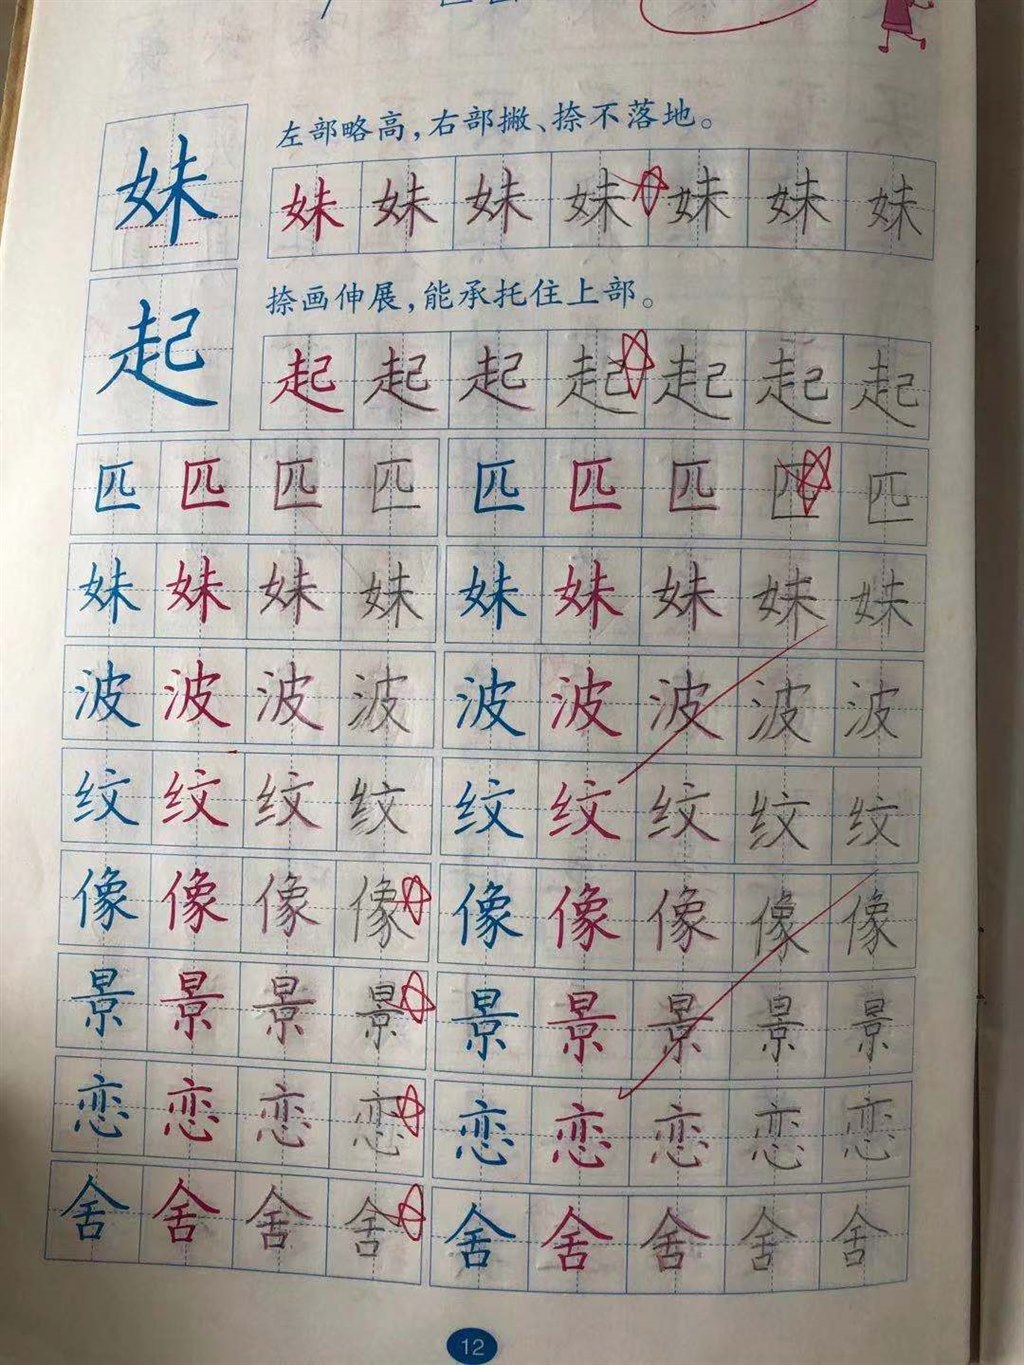 左部略高，右部撇、捺不落地。
妹 妹 妹 妹 妹 妹 妹 妹
捺画伸展，能承托住上部。
起 起 起 起 起 起 起 起
匹 匹 匹 匹 匹 匹 匹 匹 匹
妹 妹 妹 妹 妹 妹 妹 妹 妹
波 波 波 波 波 波 波 波 波
纹 纹 纹 纹 纹 纹 纹 纹 纹
像 像 像 像 像 像 像 像 像
景 景 景 景 景 景 景 景 景
恋 恋 恋 恋 恋 恋 恋 恋 恋
舍 舍 舍 舍 舍 舍 舍 舍 舍
12